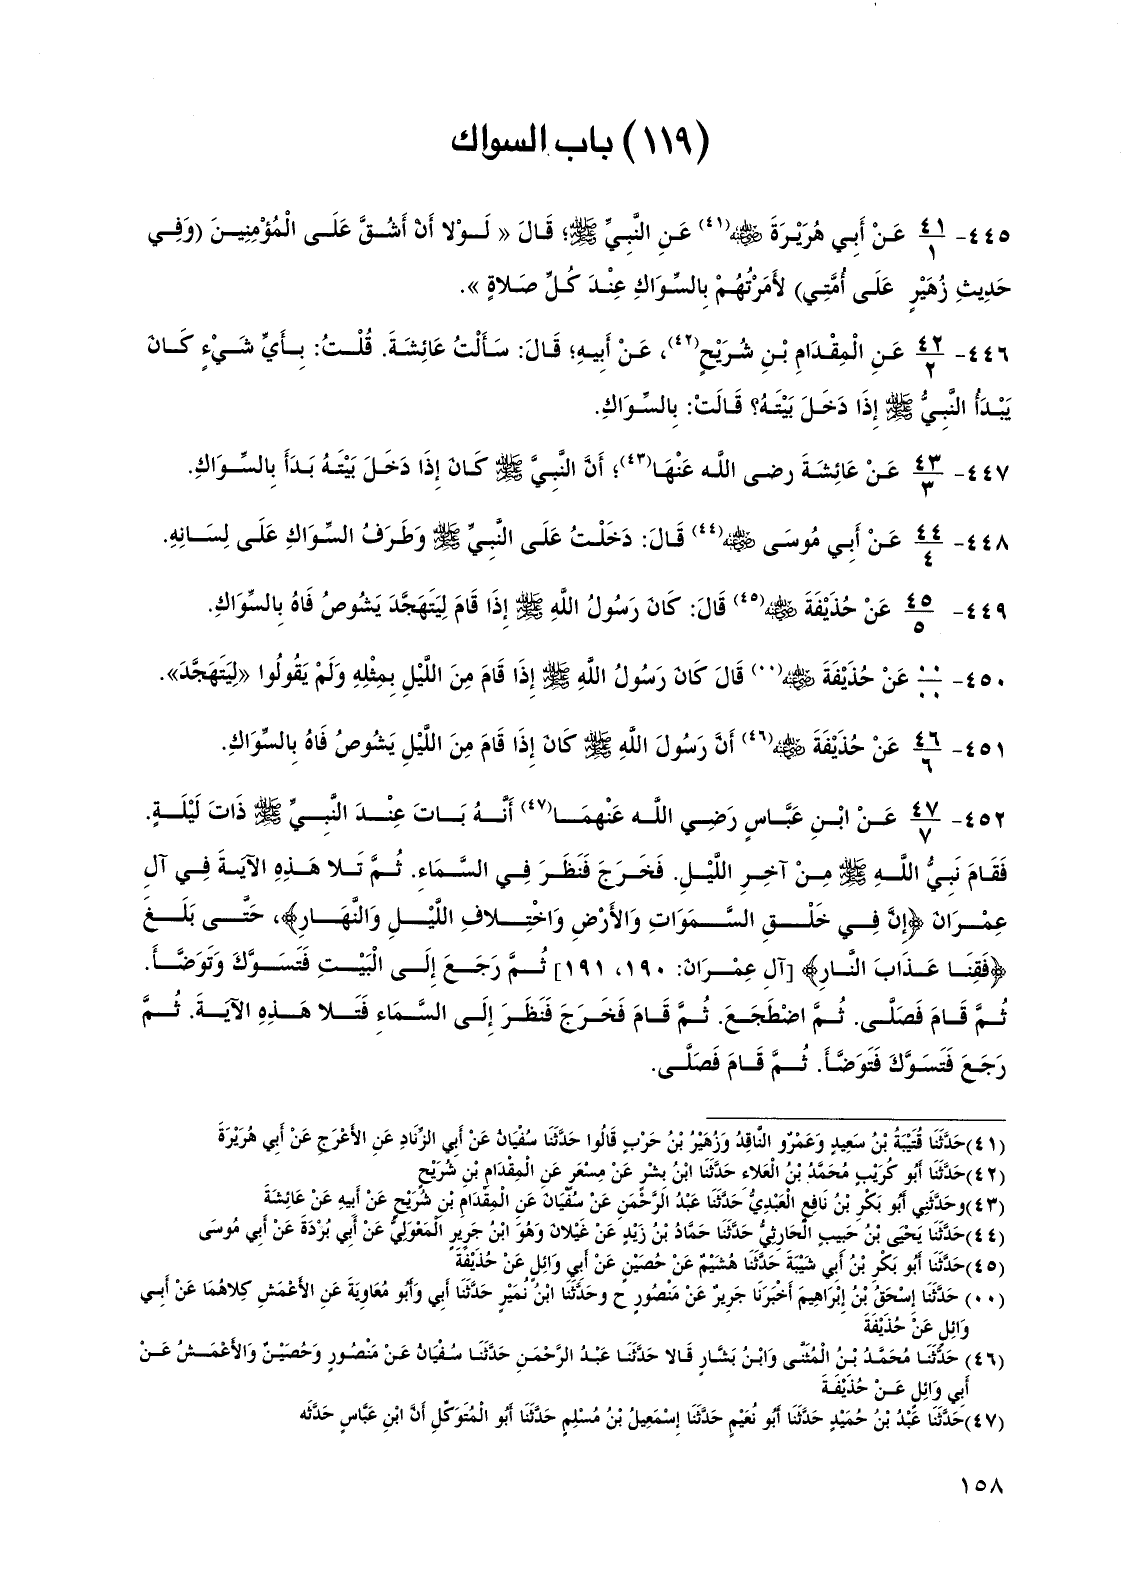 (١١٩) باب السواك
٤٤٥- ٤١/١ عَنْ أَبِي هُرَيْرَةَ ﷺ(٤١) عَنِ النَّبِيِّ ﷺ؛ قَالَ « لَوْلا أَنْ أَشُقَّ عَلَى الْمُؤْمِنِينَ (وَفِي
حَدِيثِ زُهَيْرٍ عَلَى أُمَّتِي) لأَمَرْتُهُمْ بِالسِّوَاكِ عِنْدَ كُلِّ صَلاةٍ ».
٤٤٦- ٤٢/٢ عَنِ الْمِقْدَامِ بْنِ شُرَيْحٍ(٤٢)، عَنْ أَبِيهِ؛ قَالَ: سَأَلْتُ عَائِشَةَ. قُلْتُ: بِأَيِّ شَيْءٍ كَانَ
يَبْدَأُ النَّبِيُّ ﷺ إِذَا دَخَلَ بَيْتَهُ؟ قَالَتْ: بِالسِّوَاكِ.
٤٤٧- ٤٣/٣ عَنْ عَائِشَةَ رضى الله عَنْهَا(٤٣)؛ أَنَّ النَّبِيَّ ﷺ كَانَ إِذَا دَخَلَ بَيْتَهُ بَدَأَ بِالسِّوَاكِ.
٤٤٨- ٤٤/٤ عَنْ أَبِي مُوسَى رضي الله عنه(٤٤) قَالَ: دَخَلْتُ عَلَى النَّبِيِّ ﷺ وَطَرَفُ السِّوَاكِ عَلَى لِسَانِهِ.
٤٤٩- ٤٥/٥ عَنْ حُذَيْفَةَ رضي الله عنه(٤٥) قَالَ: كَانَ رَسُولُ اللَّهِ ﷺ إِذَا قَامَ لِيَتَهَجَّدَ يَشُوصُ فَاهُ بِالسِّوَاكِ.
٤٥٠- ٠٠/٠٠ عَنْ حُذَيْفَةَ رضي الله عنه(٠٠) قَالَ كَانَ رَسُولُ اللَّهِ ﷺ إِذَا قَامَ مِنَ اللَّيْلِ بِمِثْلِهِ وَلَمْ يَقُولُوا «لِيَتَهَجَّدَ».
٤٥١- ٤٦/٦ عَنْ حُذَيْفَةَ رضي الله عنه(٤٦) أَنَّ رَسُولَ اللَّهِ ﷺ كَانَ إِذَا قَامَ مِنَ اللَّيْلِ يَشُوصُ فَاهُ بِالسِّوَاكِ.
٤٥٢- ٤٧/٧ عَنْ ابْنِ عَبَّاسٍ رَضِي الله عَنْهمَا(٤٧) أَنَّهُ بَاتَ عِنْدَ النَّبِيِّ ﷺ ذَاتَ لَيْلَةٍ.
فَقَامَ نَبِيُّ اللَّهِ ﷺ مِنْ آخِرِ اللَّيْلِ. فَخَرَجَ فَنَظَرَ فِي السَّمَاءِ. ثُمَّ تَلا هَذِهِ الآيَةَ فِي آلِ
عِمْرَانَ ﴿إِنَّ فِي خَلْقِ السَّمَوَاتِ وَالأَرْضِ وَاخْتِلافِ اللَّيْلِ وَالنَّهَارِ﴾، حَتَّى بَلَغَ
﴿فَقِنَا عَذَابَ النَّارِ﴾ [آل عِمْرَانَ: ١٩٠، ١٩١] ثُمَّ رَجَعَ إِلَى الْبَيْتِ فَتَسَوَّكَ وَتَوَضَّأَ.
ثُمَّ قَامَ فَصَلَّى. ثُمَّ اضْطَجَعَ. ثُمَّ قَامَ فَخَرَجَ فَنَظَرَ إِلَى السَّمَاءِ فَتَلا هَذِهِ الآيَةَ. ثُمَّ
رَجَعَ فَتَسَوَّكَ فَتَوَضَّأَ. ثُمَّ قَامَ فَصَلَّى.
(٤١)حَدَّثَنَا قُتَيْبَةُ بْنُ سَعِيدٍ وَعَمْرٌو النَّاقِدُ وَزُهَيْرُ بْنُ حَرْبٍ قَالُوا حَدَّثَنَا سُفْيَانُ عَنْ أَبِي الزِّنَادِ عَنِ الأَعْرَجِ عَنْ أَبِي هُرَيْرَةَ
(٤٢)حَدَّثَنَا أَبُو كُرَيْبٍ مُحَمَّدُ بْنُ الْعَلاءِ حَدَّثَنَا ابْنُ بِشْرٍ عَنْ مِسْعَرٍ عَنِ الْمِقْدَامِ بْنِ شُرَيْحٍ
(٤٣)وحَدَّثَنِي أَبُو بَكْرِ بْنُ نَافِعٍ الْعَبْدِيُّ حَدَّثَنَا عَبْدُ الرَّحْمَنِ عَنْ سُفْيَانَ عَنِ الْمِقْدَامِ بْنِ شُرَيْحٍ عَنْ أَبِيهِ عَنْ عَائِشَةَ
(٤٤)حَدَّثَنَا يَحْيَى بْنُ حَبِيبٍ الْحَارِثِيُّ حَدَّثَنَا حَمَّادُ بْنُ زَيْدٍ عَنْ غَيْلانَ وَهُوَ ابْنُ جَرِيرٍ الْمَعْوَلِيُّ عَنْ أَبِي بُرْدَةَ عَنْ أَبِي مُوسَى
(٤٥)حَدَّثَنَا أَبُو بَكْرِ بْنُ أَبِي شَيْبَةَ حَدَّثَنَا هُشَيْمٌ عَنْ حُصَيْنٍ عَنْ أَبِي وَائِلٍ عَنْ حُذَيْفَةَ
(٠٠) حَدَّثَنَا إِسْحَقُ بْنُ إِبْرَاهِيمَ أَخْبَرَنَا جَرِيرٌ عَنْ مَنْصُورٍ ح وحَدَّثَنَا ابْنُ نُمَيْرٍ حَدَّثَنَا أَبِي وَأَبُو مُعَاوِيَةَ عَنِ الأَعْمَشِ كِلاهُمَا عَنْ أَبِي
وَائِلٍ عَنْ حُذَيْفَةَ
(٤٦) حَدَّثَنَا مُحَمَّدُ بْنُ الْمُثَنَّى وَابْنُ بَشَّارٍ قَالا حَدَّثَنَا عَبْدُ الرَّحْمَنِ حَدَّثَنَا سُفْيَانُ عَنْ مَنْصُورٍ وَحُصَيْنٌ وَالأَعْمَشُ عَنْ
أَبِي وَائِلٍ عَنْ حُذَيْفَةَ
(٤٧)حَدَّثَنَا عَبْدُ بْنُ حُمَيْدٍ حَدَّثَنَا أَبُو نُعَيْمٍ حَدَّثَنَا إِسْمَعِيلُ بْنُ مُسْلِمٍ حَدَّثَنَا أَبُو الْمُتَوَكِّلِ أَنَّ ابْنَ عَبَّاسٍ حَدَّثَه
١٥٨